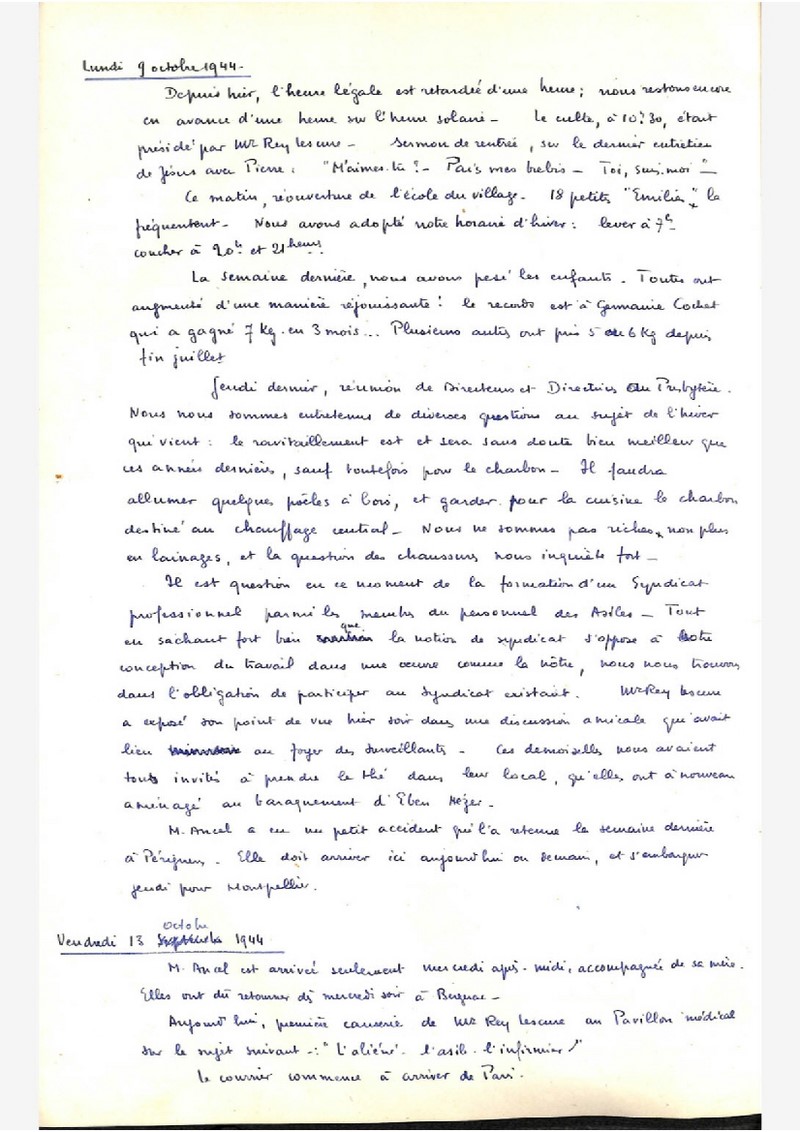 Lundi 9 octobre 1944.
Depuis hier, l'heure légale est retardée d'une heure ; nous restons encore
en avance d'une heure sur l'heure solaire - Le culte, à 10h30, était
présidé par Mr Rey Lescure - Sermon de rentrée, sur le dernier entretien
de Jésus avec Pierre : "M'aimes-tu ? - Pais mes brebis - Toi, suis-moi" -
Ce matin, réouverture de l'école du village - 18 petits "Emilie" la
fréquentent - Nous avons adopté notre horaire d'hiver : lever à 7h
coucher à 20h et 21 heures
La semaine dernière, nous avons pesé les enfants. Toutes ont
augmenté d'une manière réjouissante ! le record est à Germaine Cochet
qui a gagné 7 kg. en 3 mois... Plusieurs autres ont pris 5 ou 6 kg depuis
fin juillet
Jeudi dernier, réunion de Directeurs et Directrices au Presbytère.
Nous nous sommes entretenus de diverses questions au sujet de l'hiver
qui vient : le ravitaillement est et sera sans doute bien meilleur que
ces années dernières, sauf toutefois pour le charbon - Il faudra
allumer quelques poêles à bois, et garder pour la cuisine le charbon
destiné au chauffage central - Nous ne sommes pas riches, non plus
en lainages, et la question des chaussures nous inquiète fort -
Il est question en ce moment de la formation d'un Syndicat
professionnel parmi les membres du personnel des Asiles - Tout
en sachant fort bien que la notion de syndicat s'oppose à notre
conception du travail dans une oeuvre comme la nôtre, nous nous trouvons
dans l'obligation de participer au Syndicat existant. Mr Rey Lescure
a exposé son point de vue hier soir dans une discussion amicale qui avait
lieu au foyer des surveillants - Ces demoiselles nous avaient
tous invités à prendre le thé dans leur local, qu'elles ont à nouveau
aménagé au baraquement d'Eben Hézer -
M. Ancel a eu un petit accident qui l'a retenue la semaine dernière
à Périgueux. Elle doit arriver ici aujourd'hui ou demain, et s'embarquer
jeudi pour Montpellier.
Vendredi 13 octobre 1944
M. Ancel est arrivée seulement mercredi après-midi, accompagnée de sa mère.
Elles ont dû retourner dès mercredi soir à Bergerac -
Aujourd'hui, première causerie de Mr Rey Lescure au Pavillon médical
sur le sujet suivant : "L'aliéné. l'asile. l'infirmier"
Le courrier commence à arriver de Paris.